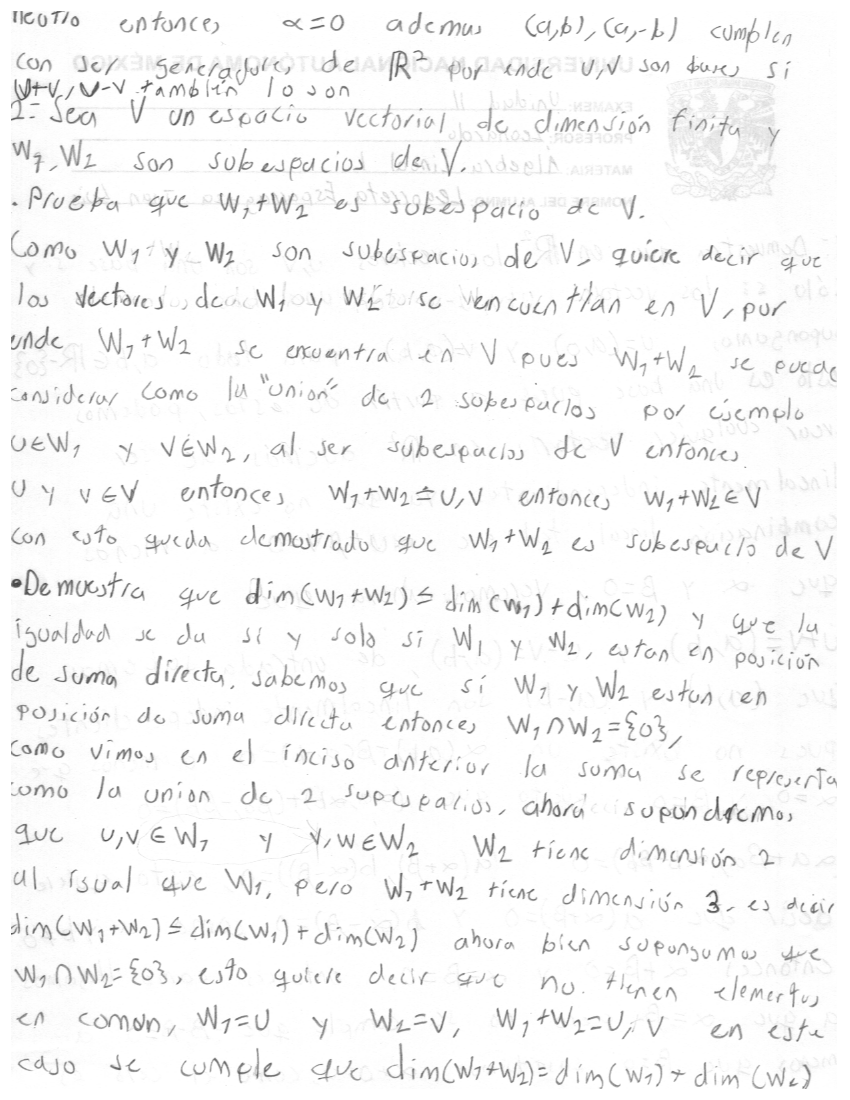 neutro entonces α=0 ademas (a,b),(a,-b) cumplen
con ser generadores de ℝ² por ende U,V son bases si
U+V, U-V también lo son
2- Sea V un espacio vectorial de dimensión finita y
W1, W2 son subespacios de V.
. Prueba que W1+W2 es subespacio de V.
Como W1 y W2 son subespacios de V, quiere decir que
los vectores de W1 y W2 se encuentran en V, por
ende W1+W2 se encuentra en V pues W1+W2 se puede
considerar como la "union" de 2 subespacios por ejemplo
U∈W1 y V∈W2, al ser subespacios de V entonces
U y V∈V entonces W1+W2=U,V entonces W1+W2∈V
con esto queda demostrado que W1+W2 es subespacio de V
•Demuestra que dim(W1+W2)≤dim(W1)+dim(W2) y que la
igualdad se da si y solo si W1 y W2, estan en posición
de suma directa. sabemos que si W1 y W2 estan en
posición de suma directa entonces W1∩W2={0},
como vimos en el inciso anterior la suma se representa
como la union de 2 supespacios, ahora supondremos
que U,V∈W1 y V,W∈W2 W2 tiene dimensión 2
al igual que W1, pero W1+W2 tiene dimensión 3, es decir
dim(W1+W2)≤dim(W1)+dim(W2) ahora bien supongamos que
W1∩W2={0}, esto quiere decir que no tienen elementos
en común, W1=U y W2=V, W1+W2=U,V en este
caso se cumple que dim(W1+W2)=dim(W1)+dim(W2)